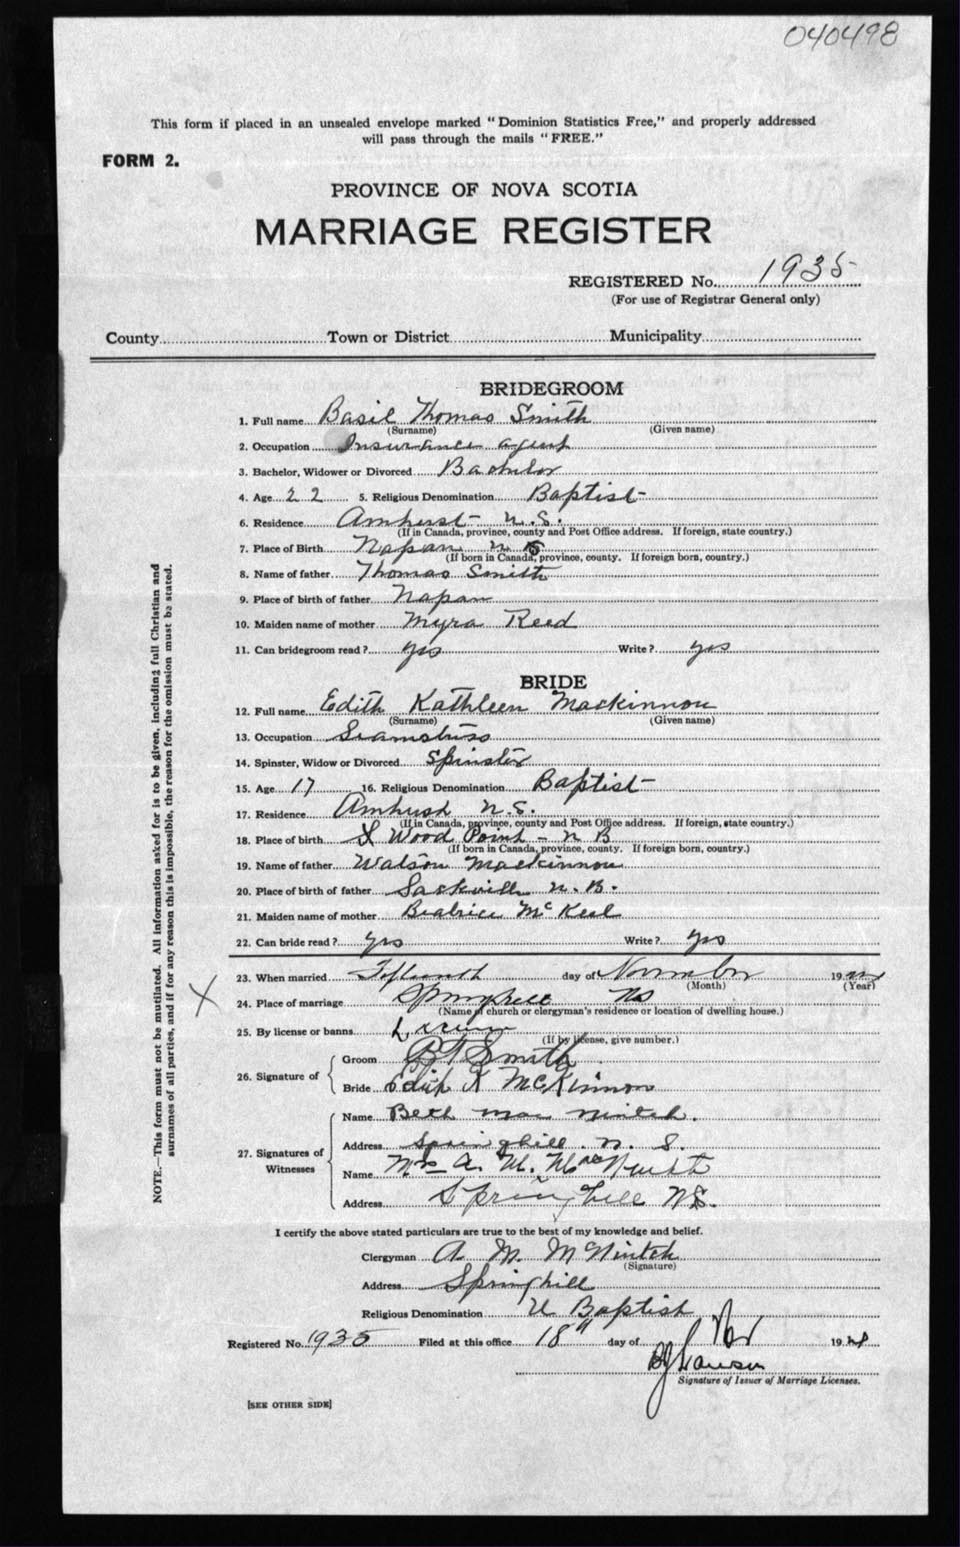 040498
This form if placed in an unsealed envelope marked "Dominion Statistics Free," and properly addressed
will pass through the mails "FREE."
FORM 2.
PROVINCE OF NOVA SCOTIA
MARRIAGE REGISTER
REGISTERED No. 1935
(For use of Registrar General only)
County Town or District Municipality
BRIDEGROOM
1. Full name Basil Thomas Smith
(Surname) (Given name)
2. Occupation Insurance agent
3. Bachelor, Widower or Divorced Bachelor
4. Age 22 5. Religious Denomination Baptist
6. Residence Amherst N.S.
(If in Canada, province, county and Post Office address. If foreign, state country.)
7. Place of Birth Napan N S
(If born in Canada, province, county. If foreign born, country.)
8. Name of father Thomas Smith
9. Place of birth of father Napan
10. Maiden name of mother Myra Reed
11. Can bridegroom read? yes Write? yes
BRIDE
12. Full name Edith Kathleen Mackinnon
(Surname) (Given name)
13. Occupation Seamstress
14. Spinster, Widow or Divorced Spinster
15. Age 17 16. Religious Denomination Baptist
17. Residence Amherst N.S.
(If in Canada, province, county and Post Office address. If foreign, state country.)
18. Place of birth Wood Point - N B
(If born in Canada, province, county. If foreign born, country.)
19. Name of father Watson Mackinnon
20. Place of birth of father Sackville N.B.
21. Maiden name of mother Beatrice McKeal
22. Can bride read? yes Write? yes
23. When married Fifteenth day of November 192
(Month) (Year)
X
24. Place of marriage Springhill NS
(Name of church or clergyman's residence or location of dwelling house.)
25. By license or banns License
(If by license, give number.)
26. Signature of
Groom B T Smith
Bride Edith K McKinnon
27. Signatures of Witnesses
Name Beth Mac Nintch.
Address Springhill. N. S.
Name Mrs A. M. MacNintch
Address Springhill NS.
I certify the above stated particulars are true to the best of my knowledge and belief.
Clergyman A. M. McNintch
(Signature)
Address Springhill
Religious Denomination U Baptist
Registered No. 1935 Filed at this office 18" day of Nov 192
Signature of Issuer of Marriage Licenses.
[SEE OTHER SIDE]
NOTE.—This form must not be mutilated. All information asked for is to be given, including full Christian and
surnames of all parties, and if for any reason this is impossible, the reason for the omission must be stated.